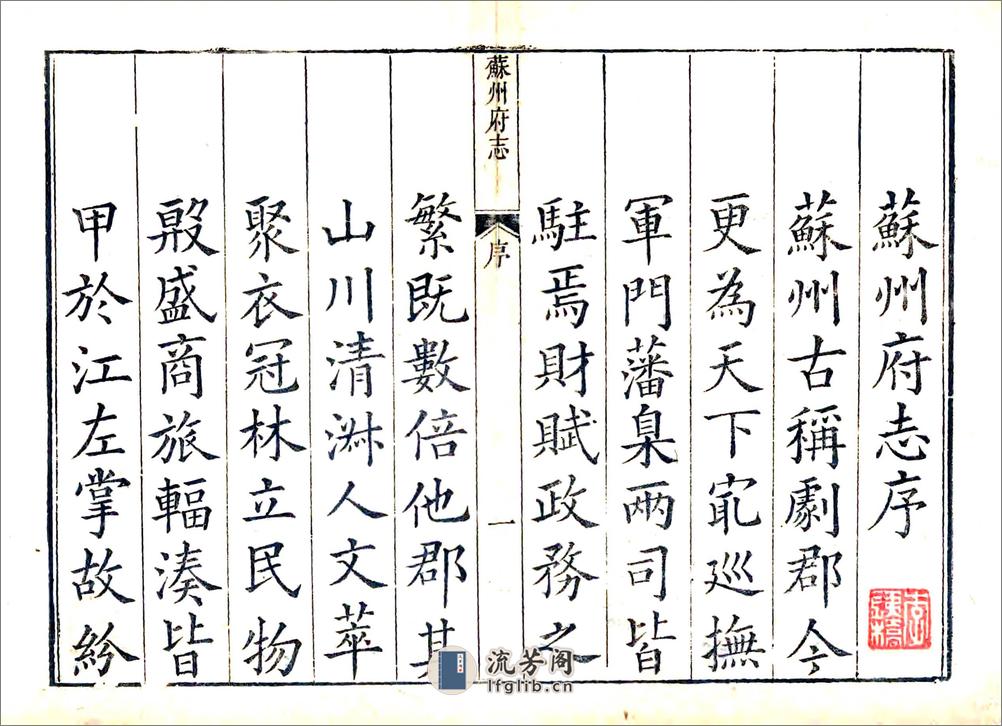 蘇州府志序
蘇州古稱劇郡今
更為天下㝡巡撫
軍門藩臬兩司皆
駐焉財賦政務之
蘇州府志
序
一
繁既數倍他郡其
山川清淑人文萃
聚衣冠林立民物
殷盛商旅輻湊皆
甲於江左掌故紛
流芳阁
lfglib.cn